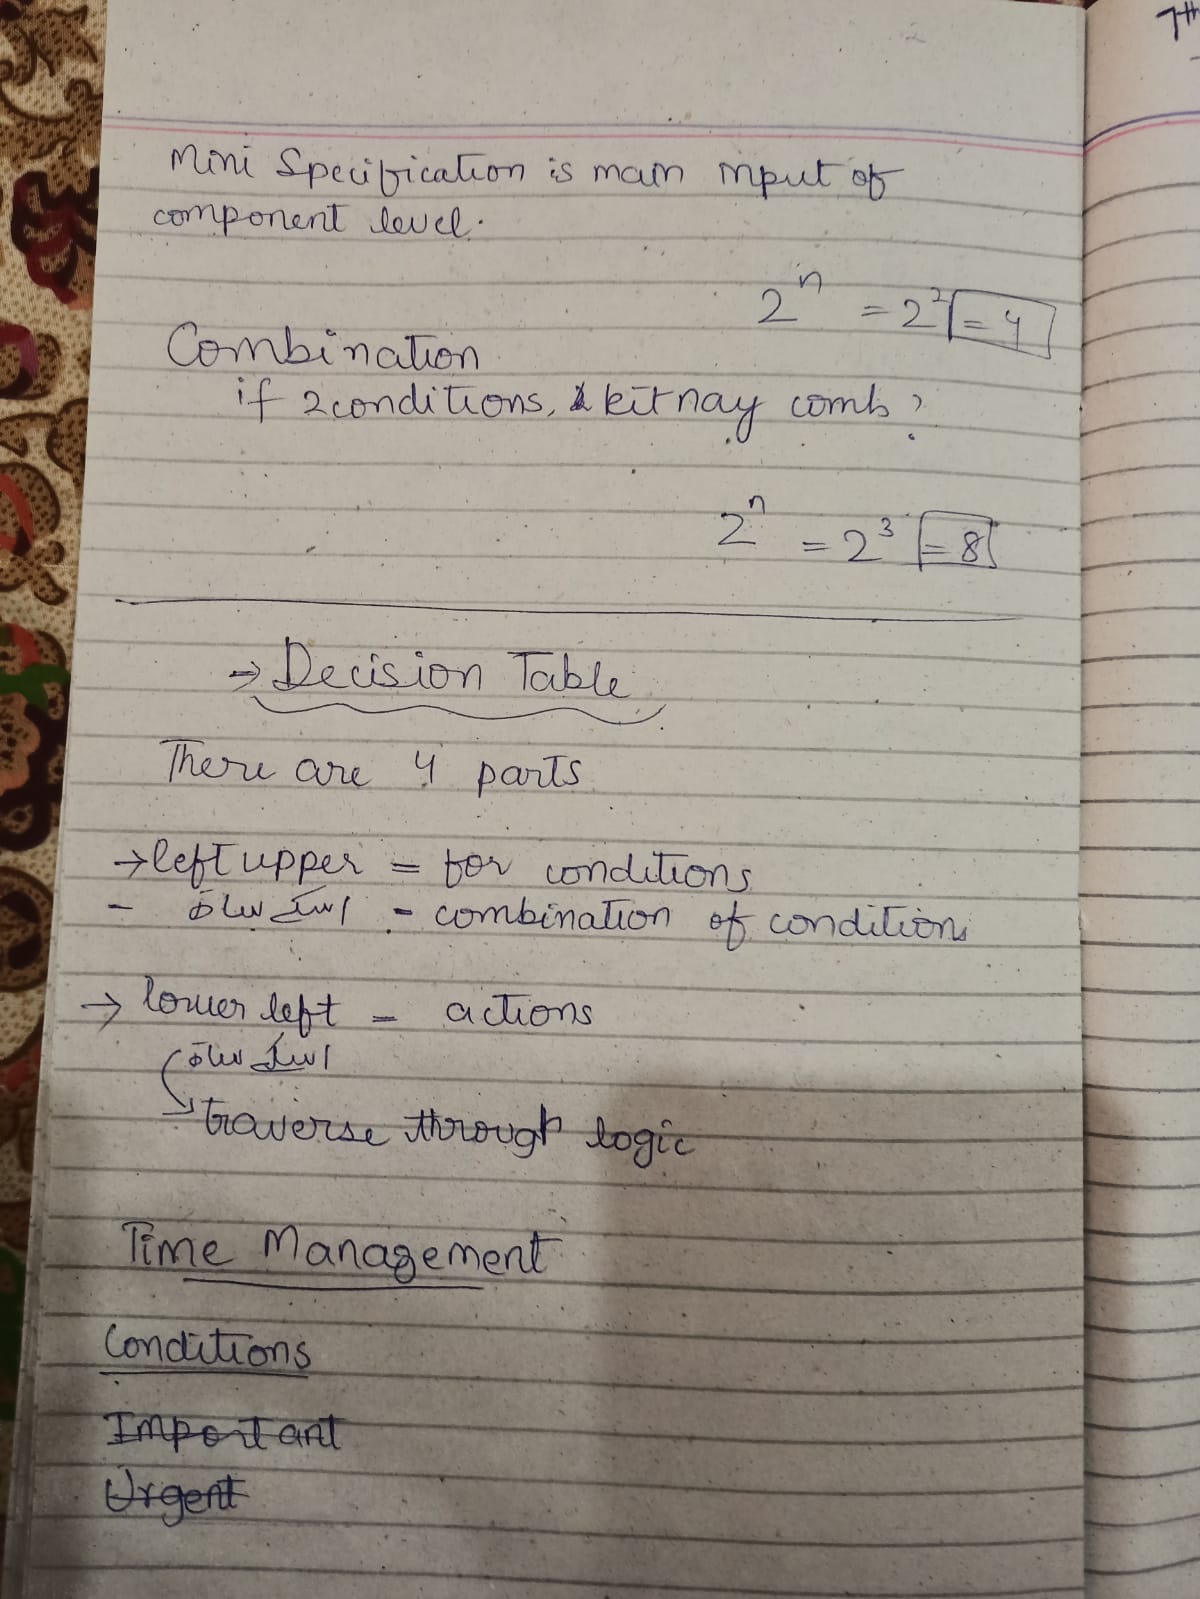 7th
Mini Specification is main input of
component level.
2^n = 2^2 = 4
Combination
if 2 conditions, kitnay comb?
2^n = 2^3 = 8
→ Decision Table
There are 4 parts
→ left upper = for conditions
- اسکے ساتھ - combination of conditions
→ lower left - actions
اسکے ساتھ
traverse through logic
Time Management
Conditions
Important
Urgent